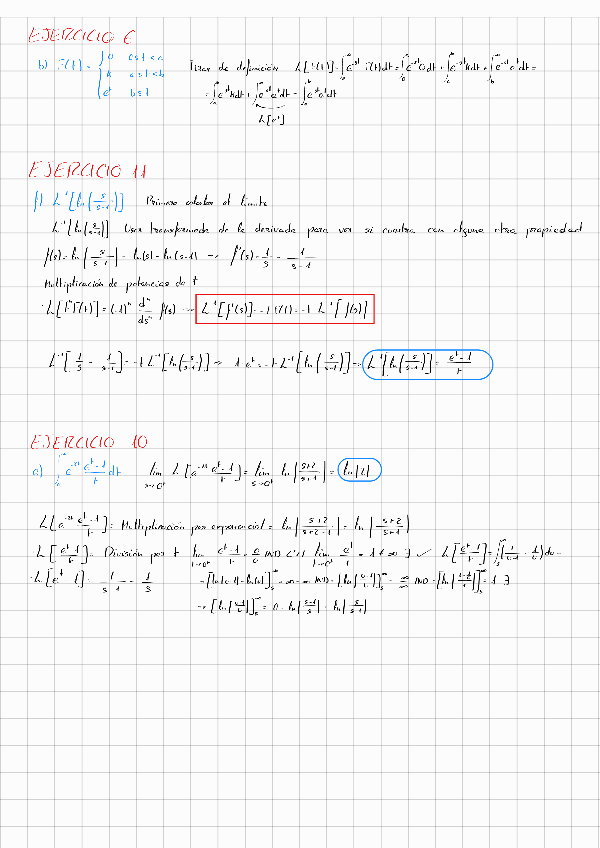 EJERCICIO 6
b) F(t) = { 0 0≤t<a
k a≤t<b
e^t b≤t
Tirar de definición L[F(t)] = ∫₀^∞ e^-st F(t)dt = ∫₀^a e^-st 0dt + ∫ₐ^b e^-st kdt + ∫_b^∞ e^-st e^t dt =
= ∫ₐ^b e^-st kdt + ∫₀^∞ e^-st e^t dt - ∫₀^b e^-st e^t dt
L[e^t]
EJERCICIO 11
f) L⁻¹[ln(s/(s-1))] Primero calcular el límite
L⁻¹[ln(s/(s-1))] Usar transformada de la derivada para ver si cuadra con alguna otra propiedad
f(s) = ln|s/(s-1)| = ln|s| - ln(s-1) → f'(s) = 1/s - 1/(s-1)
Multiplicación de potencias de t
L[t^n F(t)] = (-1)^n d^n/ds^n f(s) → L⁻¹[f'(s)] = -t F(t) = -t L⁻¹[f(s)]
L⁻¹[1/s - 1/(s-1)] = -t L⁻¹[ln(s/(s-1))] → 1-e^t = -t L⁻¹[ln(s/(s-1))] → L⁻¹[ln(s/(s-1))] = (e^t-1)/t
EJERCICIO 10
a) ∫₀^∞ e^-2t (e^t-1)/t dt lim s→0⁺ L[e^-2t (e^t-1)/t] = lim s→0⁺ ln|(s+2)/(s+1)| = ln|2|
L[e^-2t (e^t-1)/t] = Multiplicación por exponencial = ln|(s+2)/(s+2-1)| = ln|(s+2)/(s+1)|
L[(e^t-1)/t] = División por t lim t→0⁺ (e^t-1)/t = 0/0 IND L'H lim t→0⁺ e^t/1 = 1 ≠ ∞ ∃ ✓ L[(e^t-1)/t] = ∫ₛ^∞ (1/(u-1) - 1/u)du =
L[e^t-1] = 1/(s-1) - 1/s
→ [ln|(u-1)/u|]ₛ^∞ = 0 - ln|(s-1)/s| = ln|s/(s-1)|